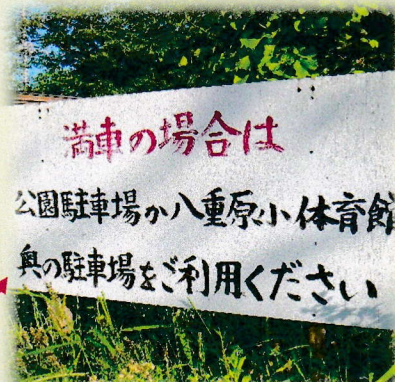 満車の場合は
公園駐車場か八重原小体育館
奥の駐車場をご利用ください